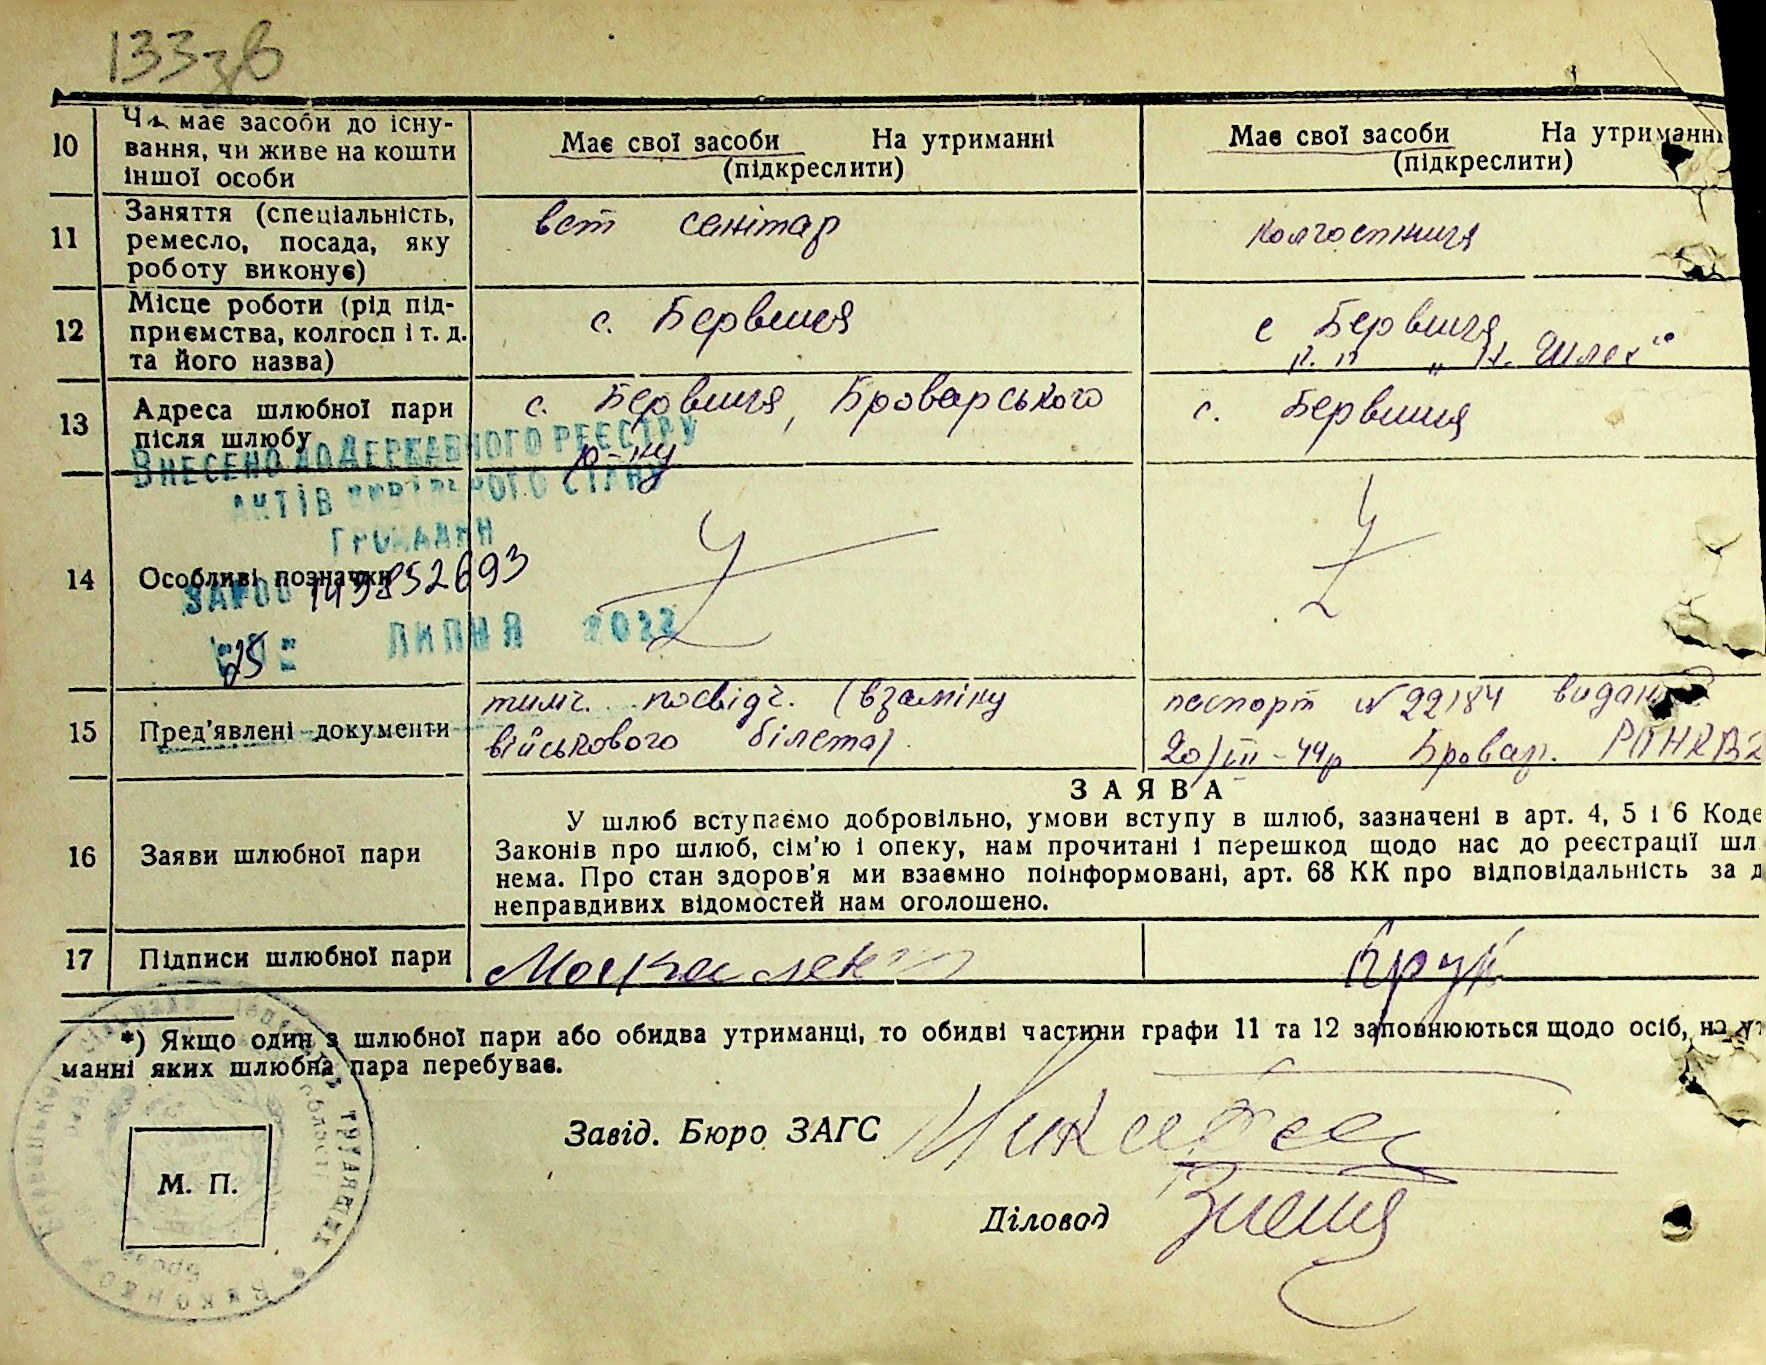 133зв
10 Чи має засоби до існу-
вання, чи живе на кошти
іншої особи
Має свої засоби На утриманні
(підкреслити)
Має свої засоби На утриманні
(підкреслити)
11 Заняття (спеціальність,
ремесло, посада, яку
роботу виконує)
вет санітар
колгоспниця
12 Місце роботи (рід під-
приємства, колгосп і т. д.
та його назва)
с. Бервиця
с Бервиця
Шлях"
13 Адреса шлюбної пари
після шлюбу
с. Бервиця, Броварського
р-ну
с. Бервиця
ВНЕСЕНО ДО ДЕРЖАВНОГО РЕЄСТРУ
АКТІВ ЦИВІЛЬНОГО СТАНУ
ГРОМАДЯН
14 Особливі позначки
25 ЛИПНЯ 2022
15 Пред'явлені документи
тимч. посвідч. (взаміну
військового білета)
паспорт № 22184 видан
20/III-44р Бровар. РОНКВД
16 Заяви шлюбної пари
ЗАЯВА
У шлюб вступаємо добровільно, умови вступу в шлюб, зазначені в арт. 4, 5 і 6 Коде
Законів про шлюб, сім'ю і опеку, нам прочитані і перешкод щодо нас до реєстрації шл
нема. Про стан здоров'я ми взаємно поінформовані, арт. 68 КК про відповідальність за д
неправдивих відомостей нам оголошено.
17 Підписи шлюбної пари
Москаленко
*) Якщо один з шлюбної пари або обидва утриманці, то обидві частини графи 11 та 12 заповнюються щодо осіб, на ут
манні яких шлюбна пара перебуває.
Завід. Бюро ЗАГС
М. П.
Діловод